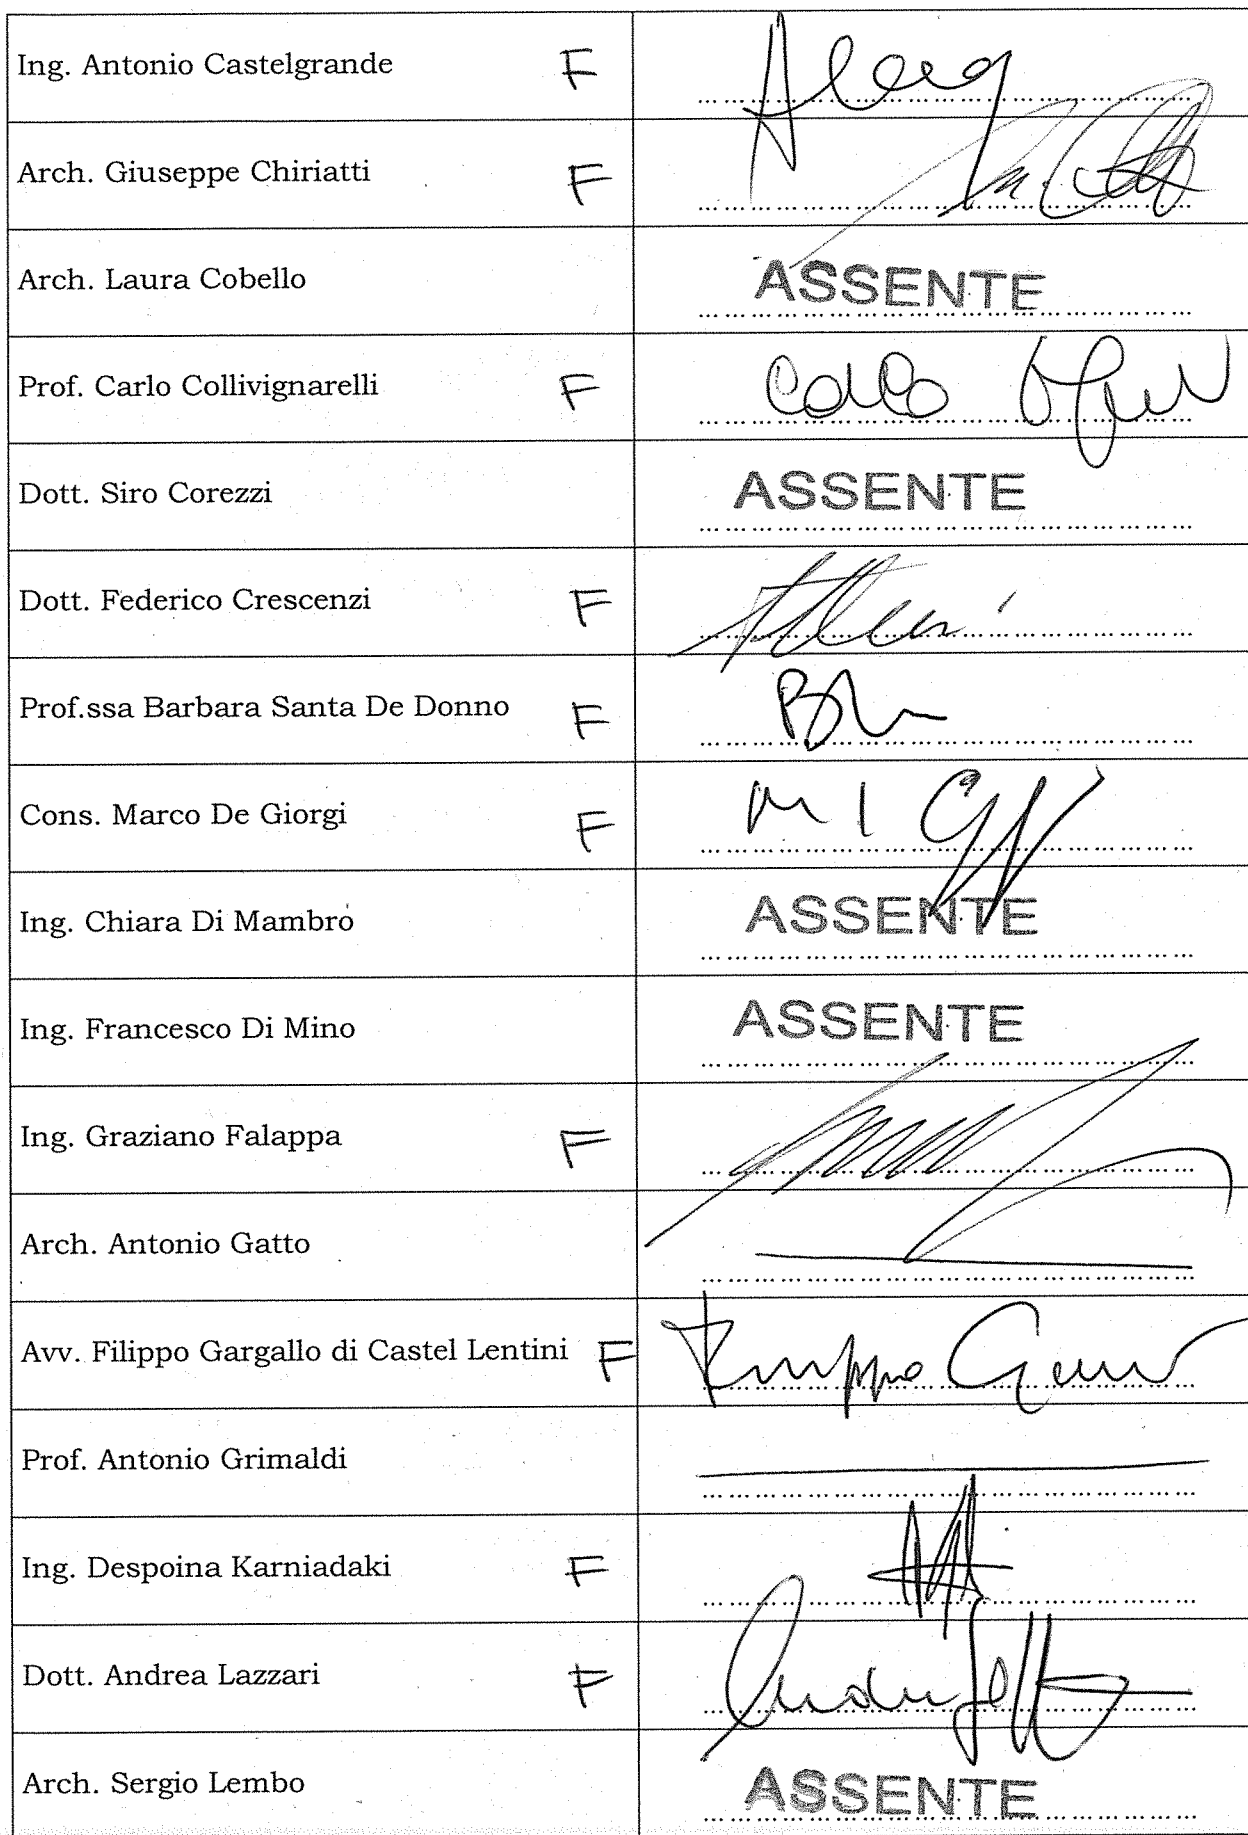 Ing. Antonio Castelgrande F
Arch. Giuseppe Chiriatti F
Arch. Laura Cobello ASSENTE
Prof. Carlo Collivignarelli F Carlo
Dott. Siro Corezzi ASSENTE
Dott. Federico Crescenzi F
Prof.ssa Barbara Santa De Donno F
Cons. Marco De Giorgi F
Ing. Chiara Di Mambro ASSENTE
Ing. Francesco Di Mino ASSENTE
Ing. Graziano Falappa F
Arch. Antonio Gatto
Avv. Filippo Gargallo di Castel Lentini F
Prof. Antonio Grimaldi
Ing. Despoina Karniadaki F
Dott. Andrea Lazzari F
Arch. Sergio Lembo ASSENTE